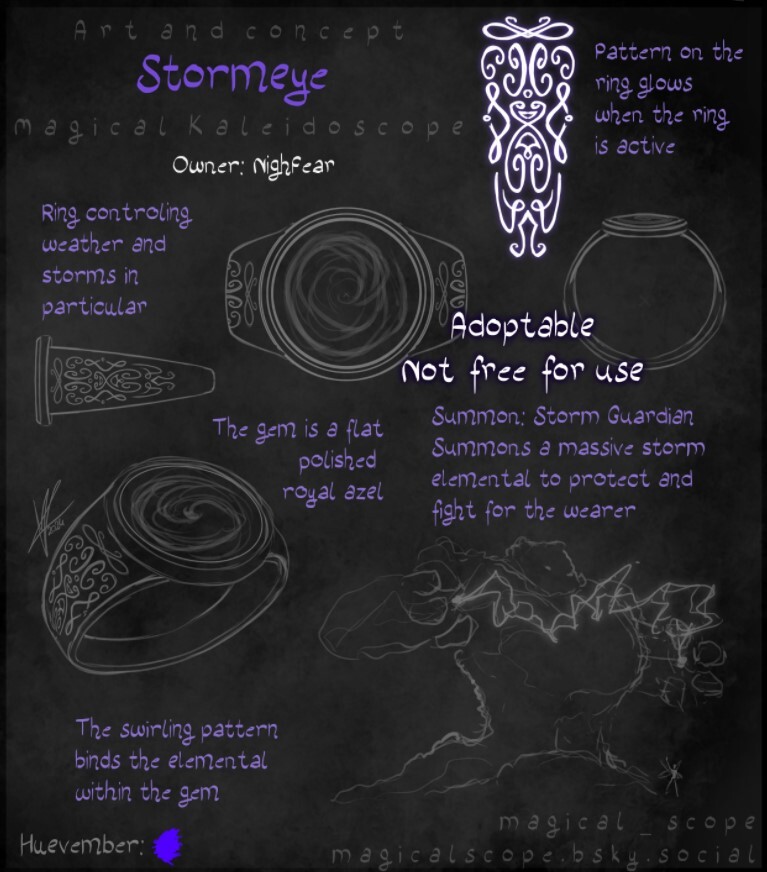 Art and concept
Stormeye
magical Kaleidoscope
Owner: NighFear
Pattern on the
ring glows
when the ring
is active
Ring controling
weather and
storms in
particular
Adoptable
Not free for use
The gem is a flat
polished
royal azel
Summon: Storm Guardian
Summons a massive storm
elemental to protect and
fight for the wearer
The swirling pattern
binds the elemental
within the gem
Huevember:
magical_scope
magicalscope.bsky.social